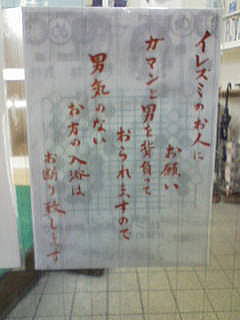 イレズミのお人に
お願い
ガマンと男を背負って
おられますので
男気のない
お方の入浴は
お断り致します